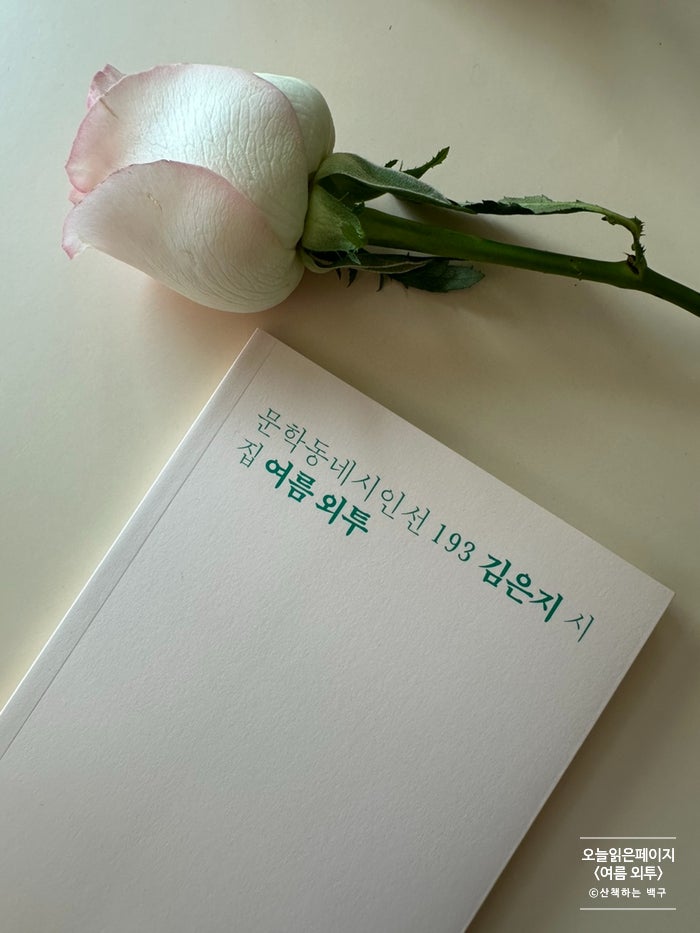 문학동네시인선 193 김은지 시
집 여름 외투
오늘읽은페이지
〈여름 외투〉
ⓒ산책하는 백구